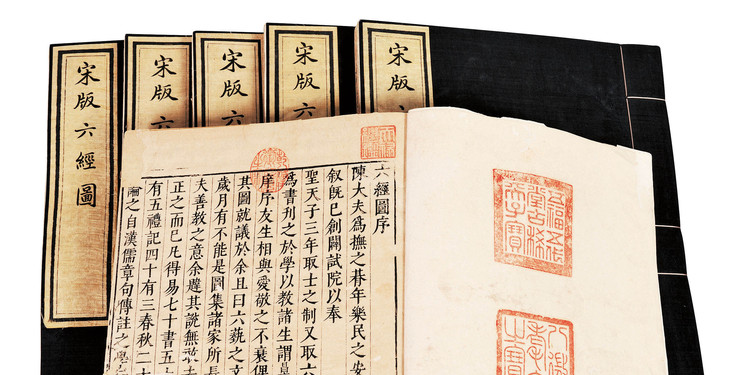 宋版六經圖
宋版六
宋版六
宋版六
宋版
六經圖序
陳大夫為撫之朞年樂民之安
叙既已創闢試院以奉
聖天子三年取士之制又取六
為書刋之於學以教諸生謂
序序友生相與愛敬之不衰俚
其圖就議於余且曰六蓺之文
歲月有不能是圖集諸家所長
夫善教之意余避其說無
正之而已凡得易七十書五
有五禮記四十有三春秋二十
之自漢儒章句傳註之學
五福五代堂古稀天子寶